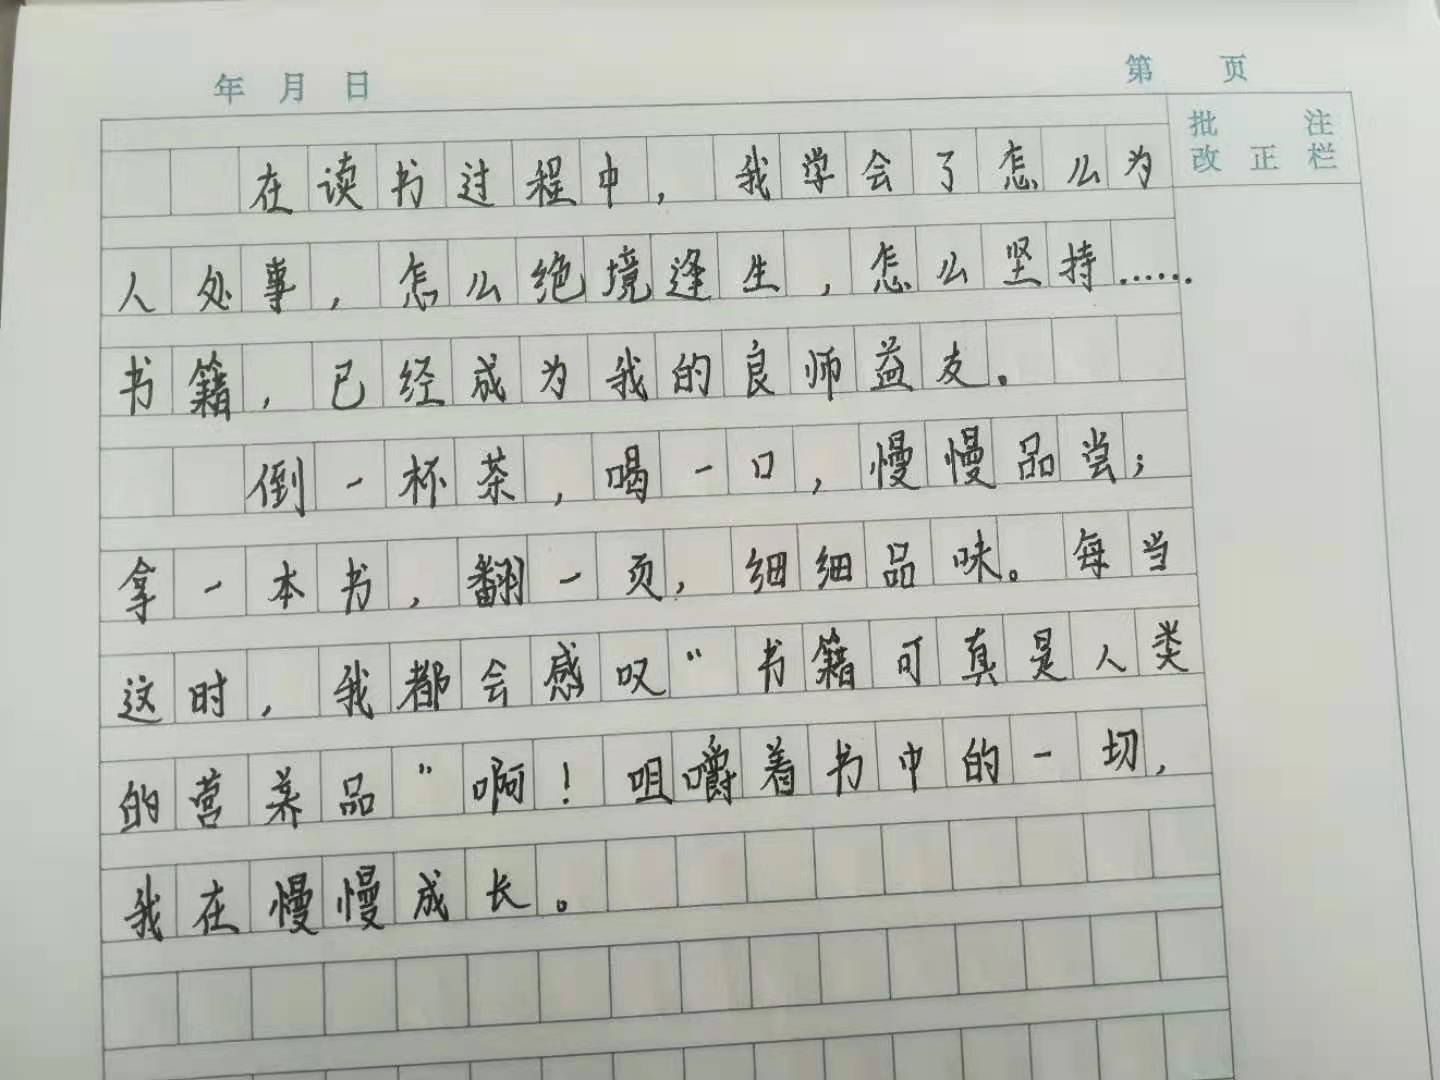 年 月 日 第 页
批 注
改 正 栏
在读书过程中，我学会了怎么为
人处事，怎么绝境逢生，怎么坚持……
书籍，已经成为我的良师益友。
倒一杯茶，喝一口，慢慢品尝；
拿一本书，翻一页，细细品味。每当
这时，我都会感叹“书籍可真是人类
的营养品”啊！咀嚼着书中的一切，
我在慢慢成长。